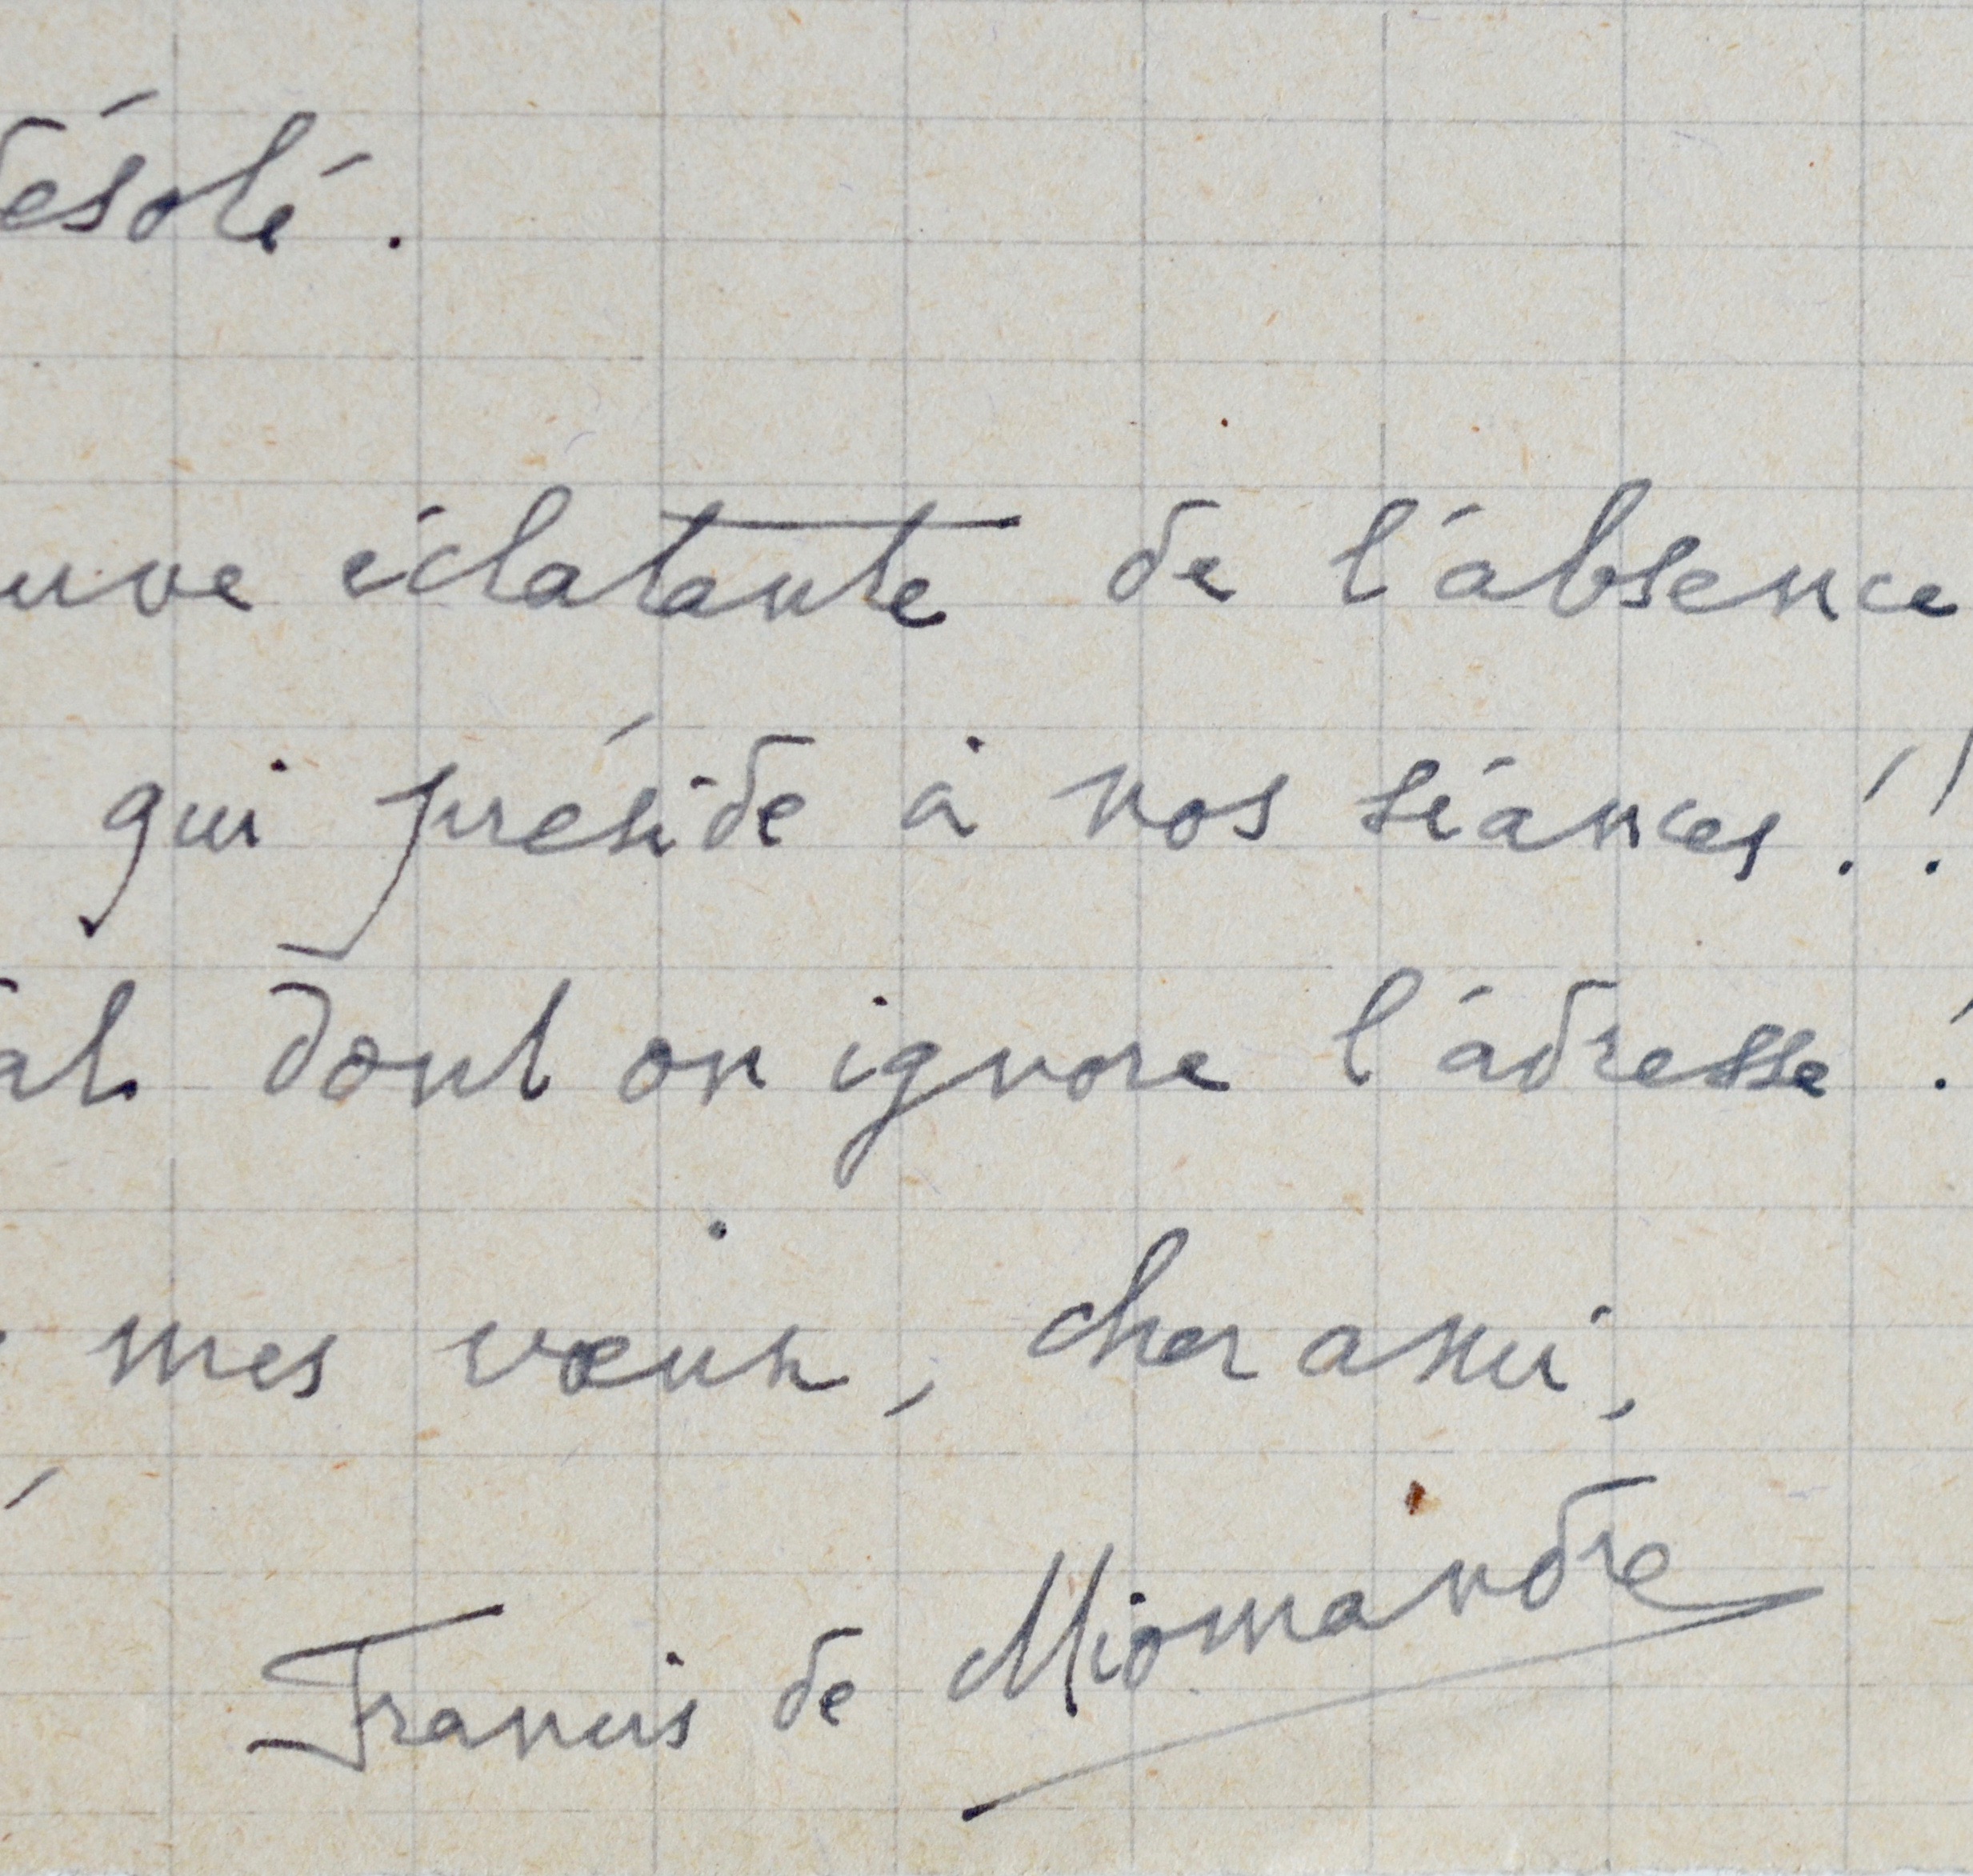 désolé.
uve éclatante de l'absence
qui préside à nos séances!!
dont on ignore l'adresse!
mes vœux, cher ami,
Francis de Miomandre